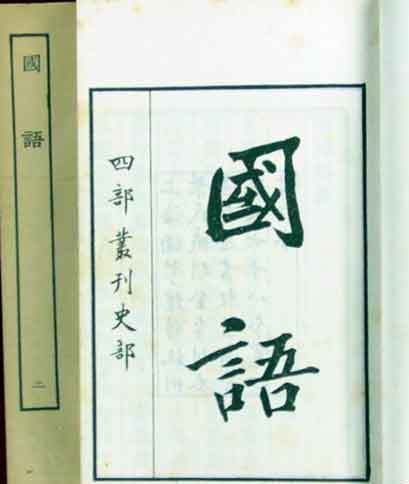 國語
四部叢刊史部
國語
二